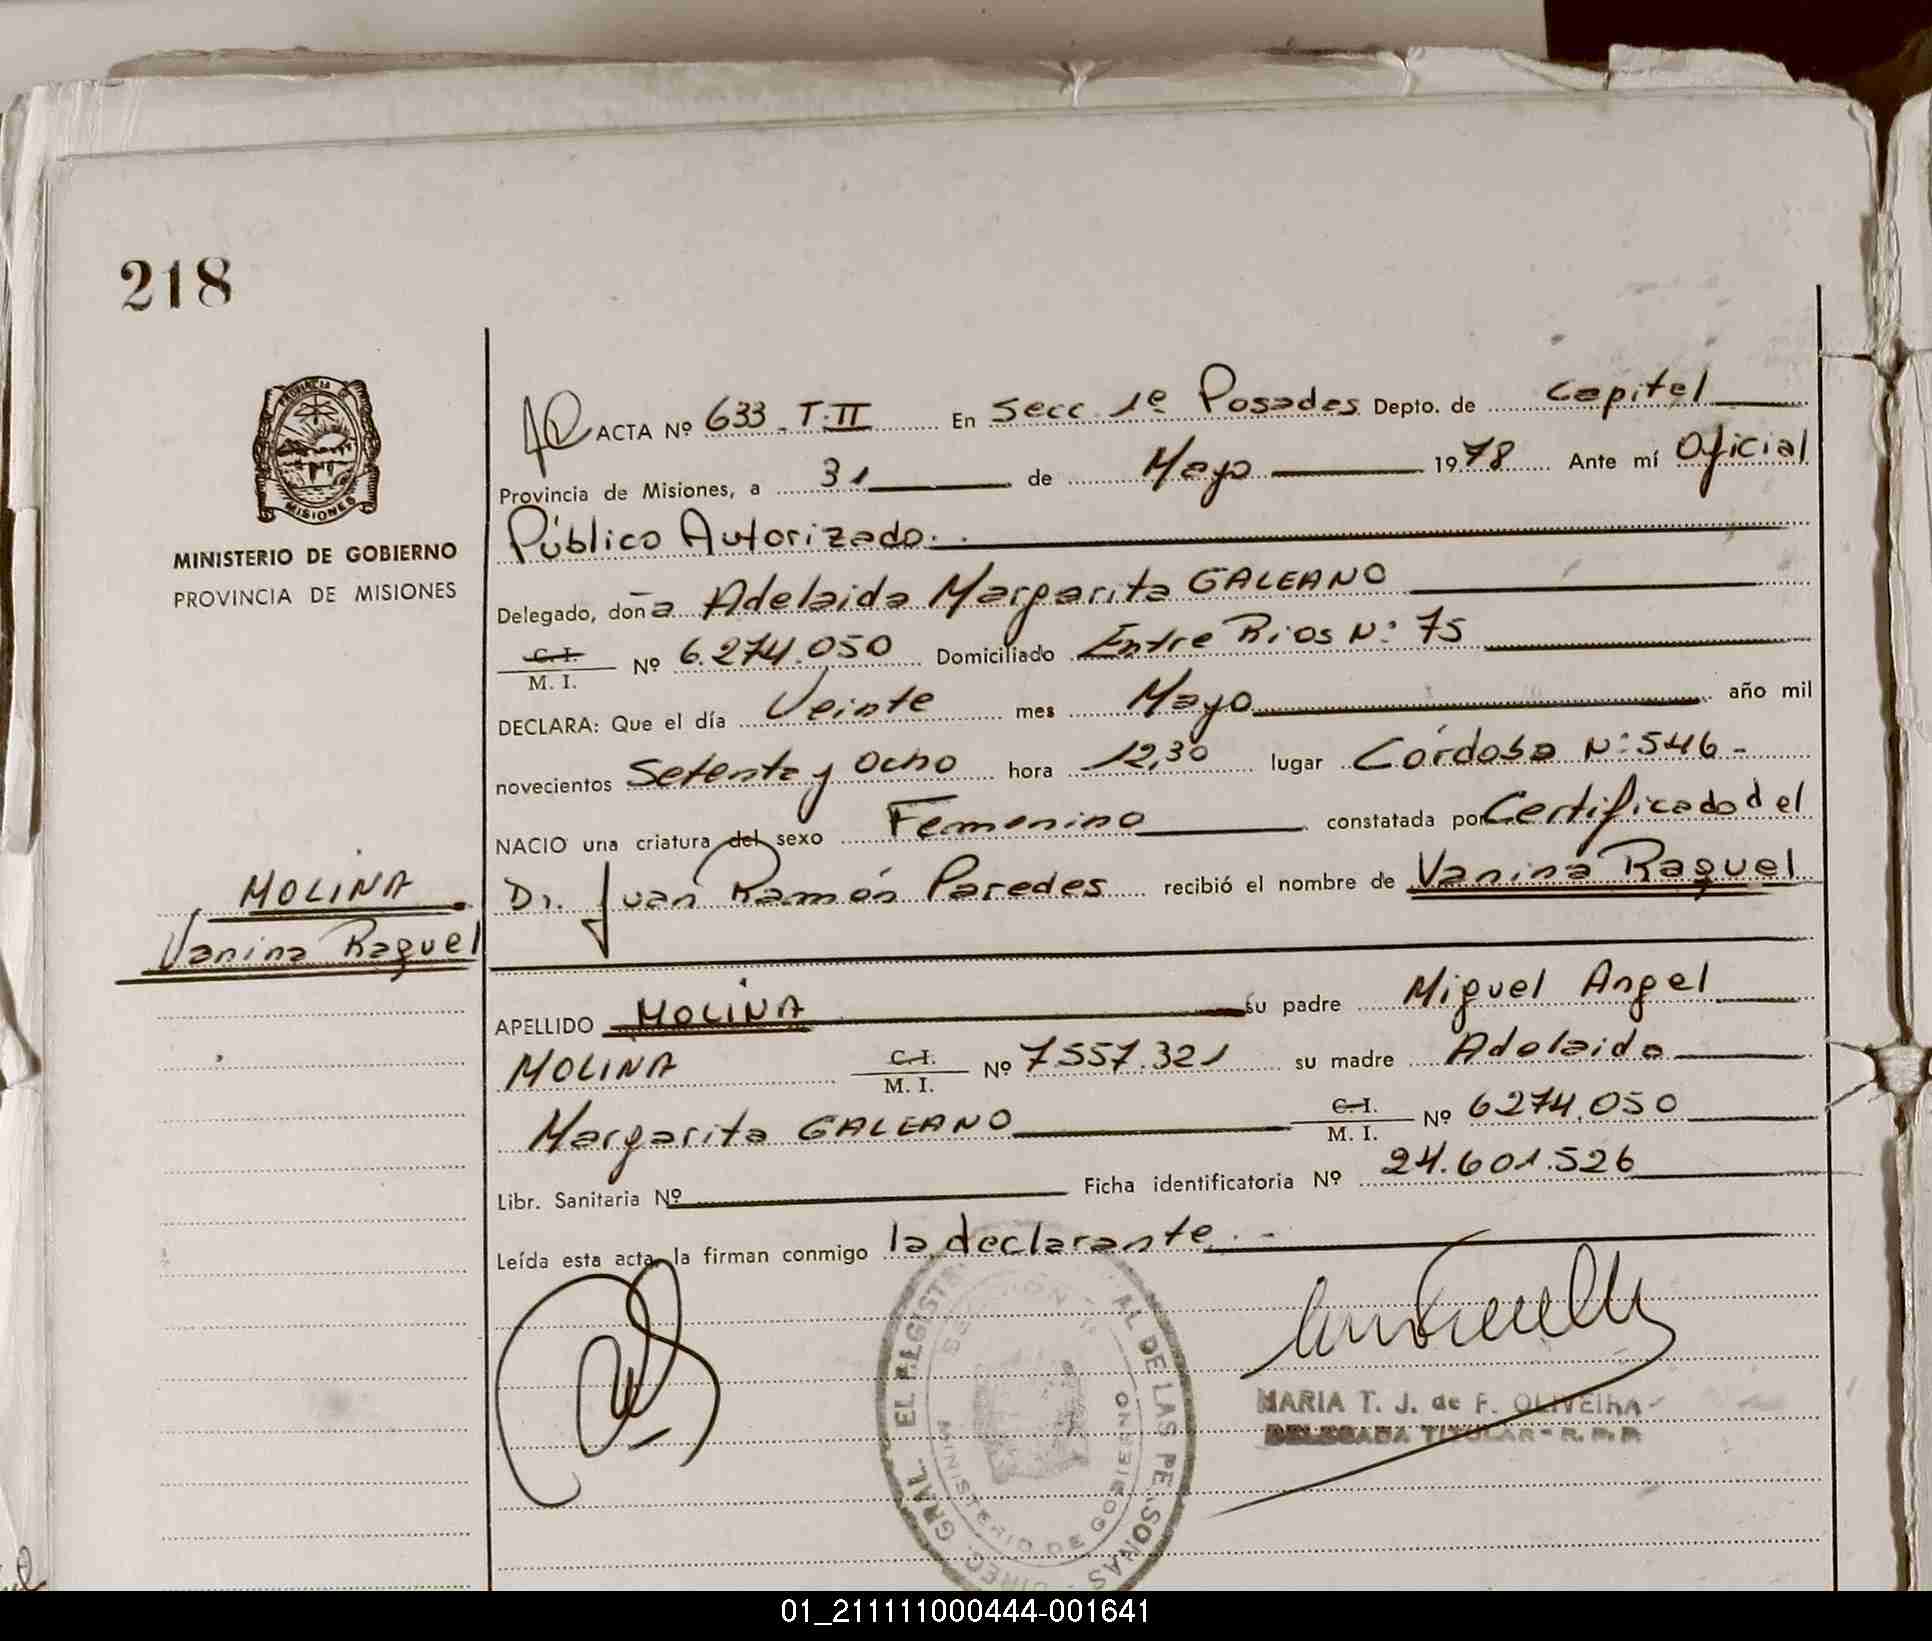 218
PROVINCIA D
MISIONES
MINISTERIO DE GOBIERNO
PROVINCIA DE MISIONES
MOLINA
Vanina Raquel
ACTA Nº 633 T.II En Secc 1ª Posadas Depto. de Capital
Provincia de Misiones, a 31 de Mayo 1978 Ante mí Oficial
Público Autorizado.
Delegado, doña Adelaida Margarita GALEANO
C. I. / M. I. Nº 6.274.050 Domiciliado Entre Rios Nº 75
DECLARA: Que el día Veinte mes Mayo año mil
novecientos Setenta y Ocho hora 12,30 lugar Córdoba Nº 546 -
NACIO una criatura del sexo Femenino constatada por Certificado del
Dr. Juan Ramón Paredes recibió el nombre de Vanina Raquel
APELLIDO MOLINA su padre Miguel Angel
MOLINA C. I. / M. I. Nº 7.557.321 su madre Adelaida
Margarita GALEANO C. I. / M. I. Nº 6274.050
Libr. Sanitaria Nº Ficha identificatoria Nº 24.601.526
Leída esta acta, la firman conmigo la declarante. -
MARIA T. J. de F. OLIVEIRA
DELEGADA TITULAR - R. P. P.
DIREC. GRAL. EL REGISTR AL DE LAS PERSONAS
MINISTERIO DE GOBIERNO
01_211111000444-001641